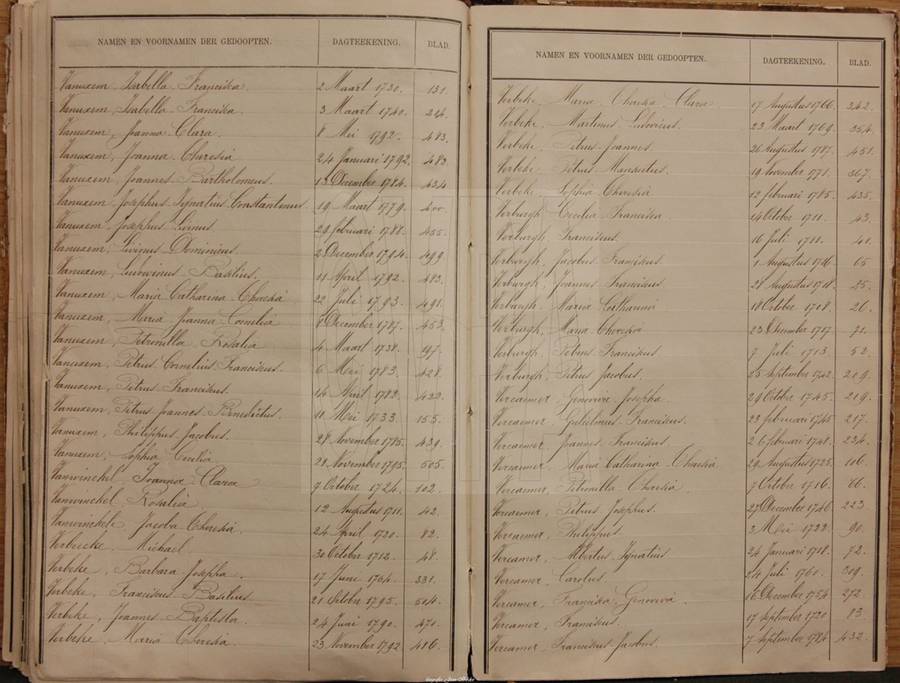 NAMEN EN VOORNAMEN DER GEDOOPTEN. DAGTEEKENING. BLAD.
Vanuxem Isabella Franciska 2 Maart 1730. 131.
Vanuxem Isabella Franciska 3 Maart 1740. 214.
Vanuxem, Joanna Clara 8 Mei 1792. 483.
Vanuxem, Joanna Theresia 24 Januari 1792. 483
Vanuxem, Joannes Bartholomeus. 13 December 1784. 434
Vanuxem, Josephus Ignatius Constantinus 19 Maart 1779.
Vanuxem, Josephus Livinus 28 februari 1788. 455.
Vanuxem, Livinus Dominicus 2 December 1794. 499
Vanuxem, Ludovicus Basilius. 11 April 1792. 483.
Vanuxem, Maria Catharina Theresia 22 Juli 1793. 491.
Vanuxem, Maria Joanna Cornelia 8 December 1787. 453.
Vanuxem, Petronilla Rosalia 4 Maart 1738. 197.
Vanuxem, Petrus Cornelius Franciskus. 6 Mei 1783. 428.
Vanuxem, Petrus Franciskus. 14 Maart 1782. 422.
Vanuxem, Petrus Joannes Benedictus. 11 Mei 1733 155.
Vanuxem, Philippus Jacobus. 28 November 1785. 439.
Vanuxem, Sophia Cecilia 29 November 1795. 505.
Vanwinckel, Joanna Clara 9 October 1724. 102.
Vanwinckel, Rosalia 12 Augustus 1711. 42.
Vanwinckele, Jacoba Theresia 24 April 1720. 82.
Verbeecke Michael 30 October 1712. 48.
Verbeke, Barbara Josepha. 17 Juni 1764. 331.
Verbeke, Franciskus Basilius 21 October 1795. 504.
Verbeke, Joannes Baptista 24 Juni 1790. 470.
Verbeke, Maria Theresia 23 November 1792 486.
NAMEN EN VOORNAMEN DER GEDOOPTEN. DAGTEEKENING. BLAD.
Verbeke, Maria Theresia Clara 17 Augustus 1766. 342.
Verbeke, Martinus Ludovicus. 23 Maart 1769. 354.
Verbeke Petrus Joannes 26 Augustus 1787. 451.
Verbeke Petrus Mansuetus 19 November 1771. 367.
Verbeke Sophia Theresia 12 februari 1785. 435.
Verburgh, Cecilia Franciska 14 October 1711. 43.
Verburgh, Franciskus. 16 Juli 1711. 41.
Verburgh, Jacobus Franciskus 1 Augustus 1716. 65.
Verburgh, Joannes Franciskus
Verburgh, Maria Catharina 18 October 1708. 26.
Verburgh, Maria Theresia 23 December 1717. 71.
Verburgh, Petrus Franciskus 7 Juli 1713. 52.
Verburgh, Petrus Jacobus. 25 September 1742. 209.
Vercaemer, Genoveva Josepha 29 October 1745. 219.
Vercaemer, Gulielmus Franciskus. 22 februari 1745 217.
Vercaemer, Joannes Franciskus. 26 februari 1748. 234.
Vercaemer, Maria Catharina Theresia 29 Augustus 1725. 106.
Vercaemer, Petronilla Theresia 7 October 1716. 66.
Vercaemer, Petrus Josephus. 27 December 1746 223.
Vercaemer, Philippus 3 Mei 1722 90.
Vercamer, Albertus Ignatius 24 Januari 1718. 72.
Vercamer, Carolus 24 Juli 1760. 309.
Vercamer, Franciska Genoveva 16 December 1754 272
Vercamer, Franciskus. 17 September 1720 83
Vercamer, Franciskus Jacobus 7 September 1784 432.